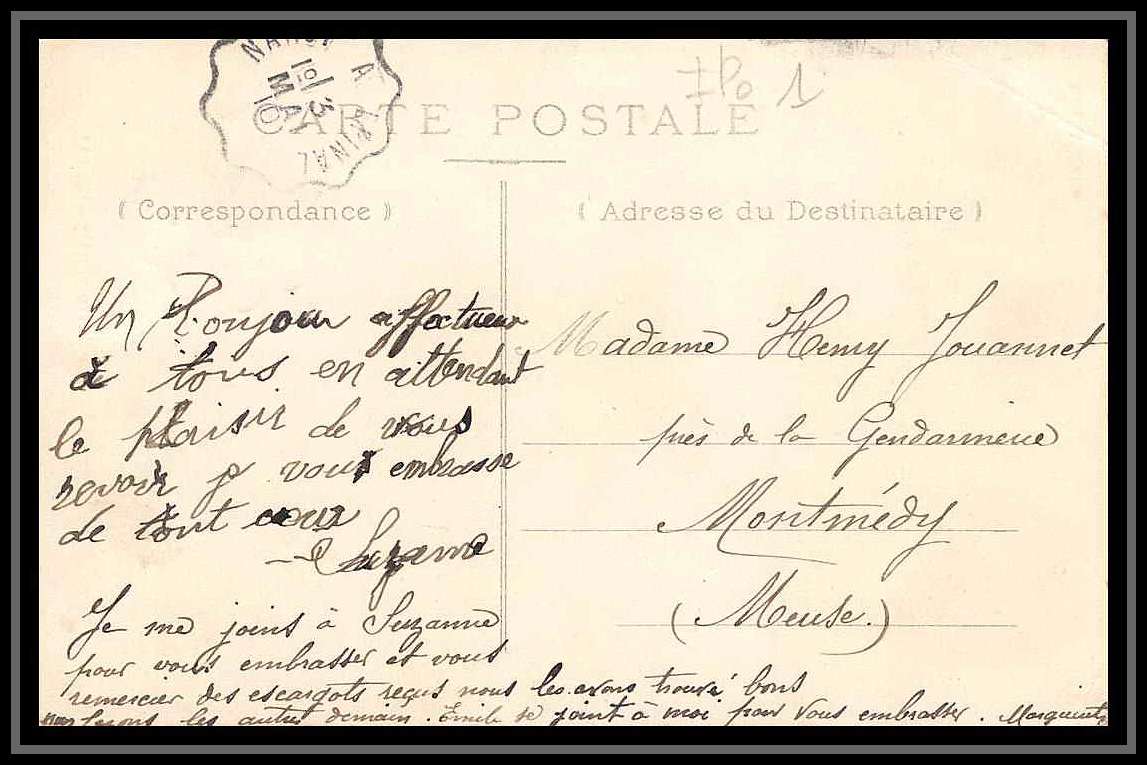 NANCY A EPINAL
10 3
MA
10
IPo 1
CARTE POSTALE
( Correspondance )
( Adresse du Destinataire )
Un Bonjour affectueux
à tous en attendant
le plaisir de vous
revoir je vous embrasse
de tout cœur
Suzanne
Je me joins à Suzanne
pour vous embrasser et vous
remercier des escargots reçus nous les avons trouvé bons
ferons les autres demain. Emile se joint à moi pour vous embrasser. Marguerite
Madame Henry Jouannet
près de la Gendarmerie
Montmédy
(Meuse.)